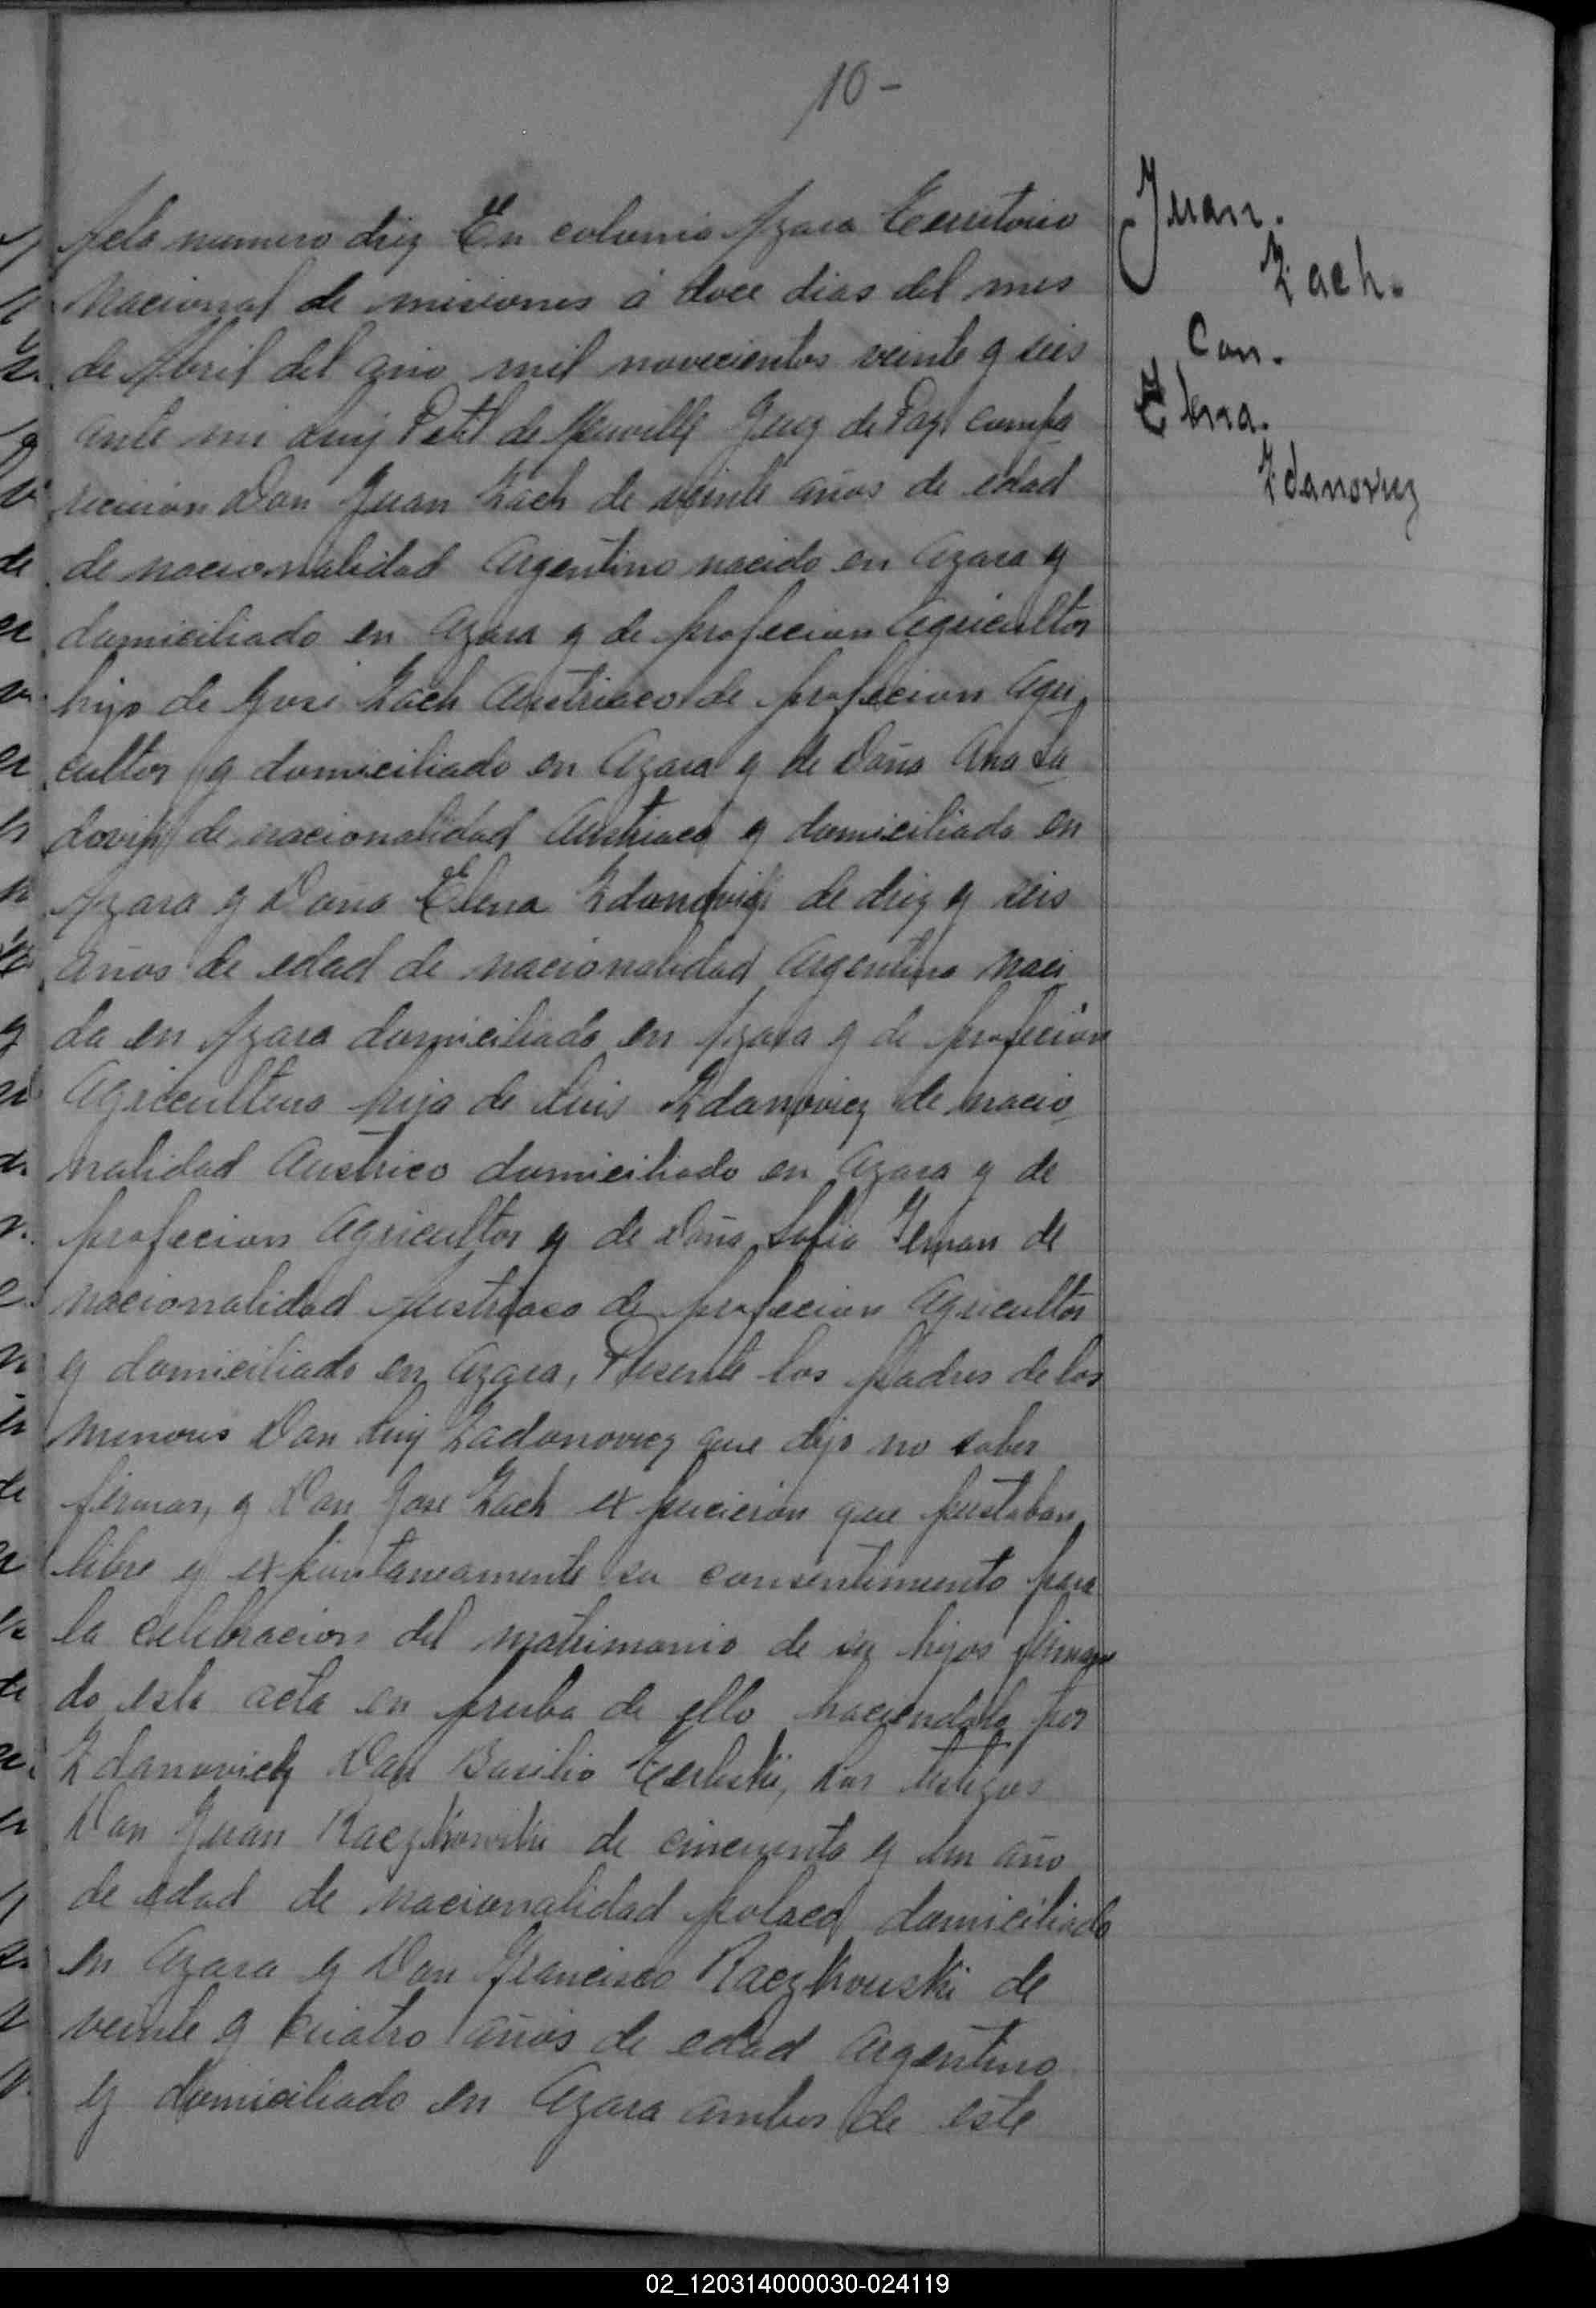 10-
Acta numero diez En colonia Azara Territorio
Nacional de misiones á doce dias del mes
de Abril del año mil novecientos veinte y seis
ante mi Luiz Petit de Juez de Paz, compa
recieron Don Juan Zach de veinte años de edad
de nacionalidad Argentino nacido en Azara y
domiciliado en Azara y de profecion Agricultor
hijo de Jose Zach Austriaco de profecion Agri
cultor y domiciliado en Azara y de Doña Ana
de nacionalidad Austriaca y domiciliada en
Azara y Doña Elena de diez y seis
años de edad de nacionalidad Argentina naci
da en Azara domiciliada en Azara y de profecion
Agricultora hija de Luis Zdanovicz de nacio
nalidad Austrico domiciliado en Azara y de
profecion Agricultor y de Doña Sofia de
nacionalidad Austriaco de profecion Agricultor
y domiciliado en Azara, Presente los Padres de los
menores Don Luiz Zadanovicz que dijo no saber
firmar, y Don Jose Zach que
libre y expontaneamente su consentimiento para
la celebracion del matrimonio de su hijos firman
do esta acta en prueba de ello haciendolo por
Zdanovicz Don Basilio los testigos
Don Juan Raczkowski de cincuenta y un año
de edad de nacionalidad polaca domiciliado
en Azara y Don Francisco Raczkouski de
veinte y cuatro años de edad Argentino
y domiciliado en Azara ambos de este
Juan.
Zach.
Con.
Elena.
Zdanovicz
02_120314000030-024119